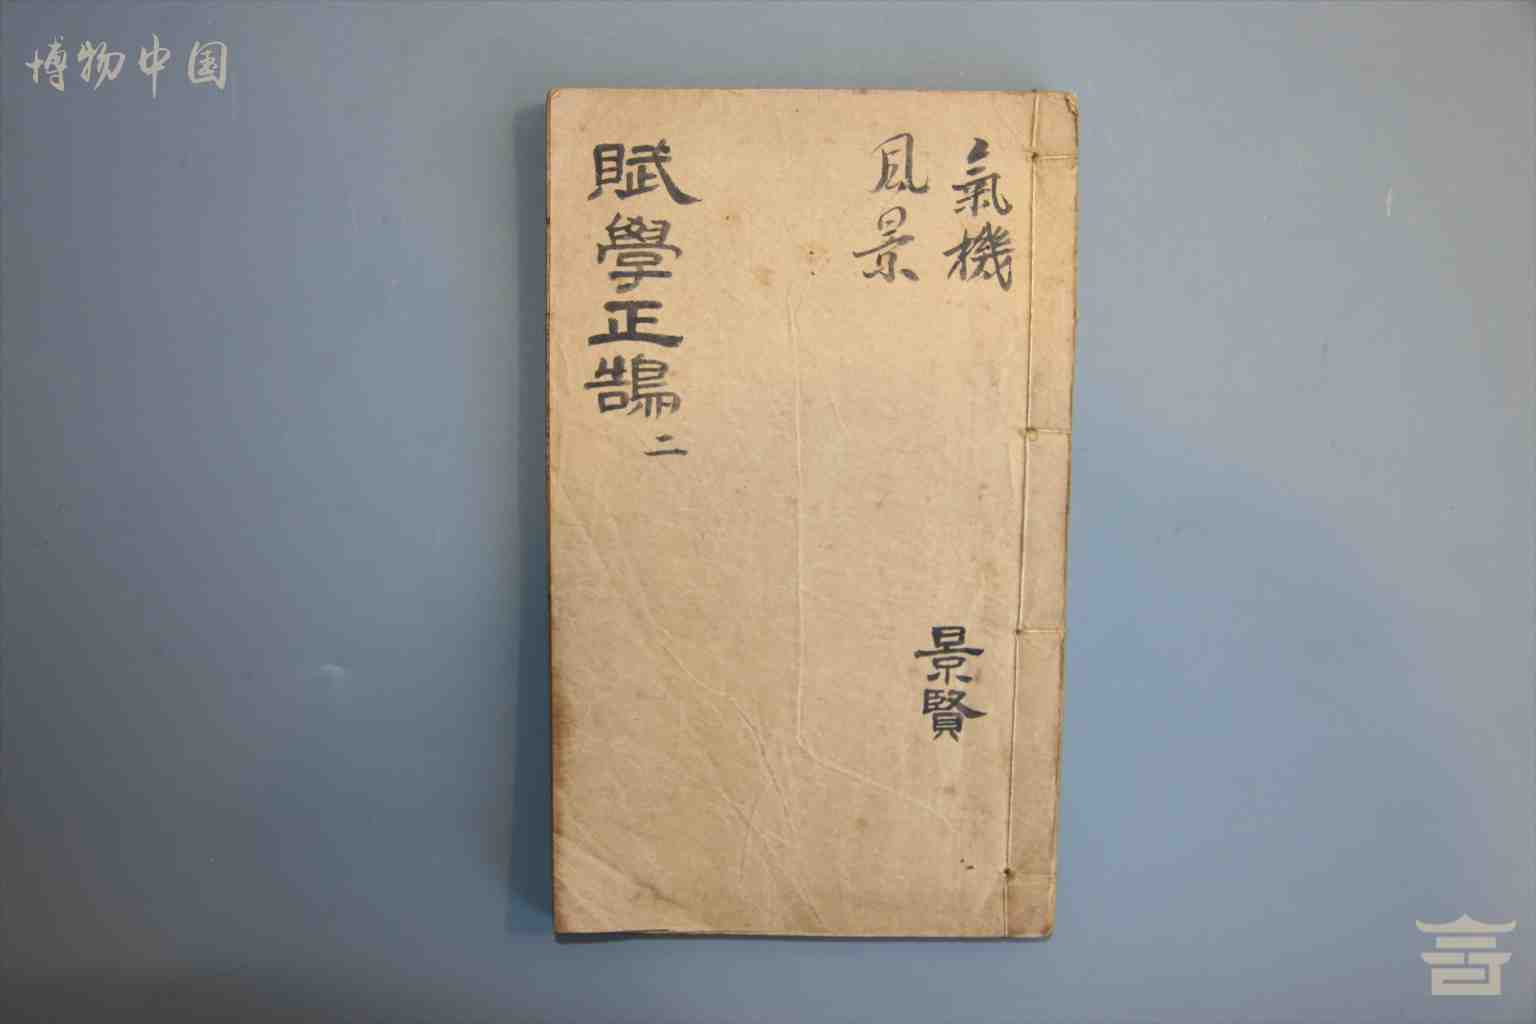 博物中国
氣機
風景
景賢
賦學正鵠
二